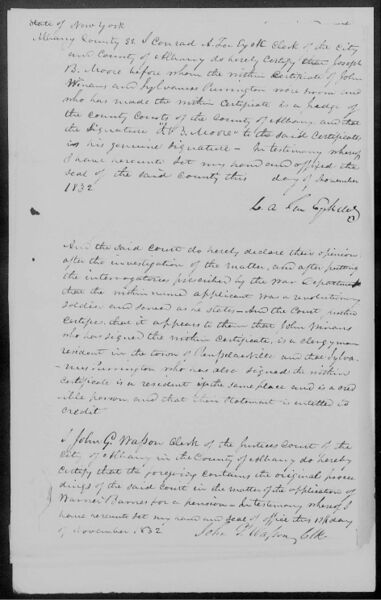 State of New York
Albany County ss. I Conrad A. Ten Eyck Clerk of the City
and County of Albany do hereby Certify that Joseph
B. Moore before whom the within Certificate of John
Winans and Sylvanus Purrington was sworn and
who has made the within Certificate is a Judge of
the County Courts of the County of Albany and that
the signature "B. Moore" to the said Certificate
is his genuine signature - In testimony whereof
I have hereunto set my hand and affixed the
seal of the said County this day of November
1832
C. A. Ten Eyck Clk
And the said Court do hereby declare their opinion,
after the investigation of the matter, and after putting
the interrogatories prescribed by the War Department
that the within named applicant was a revolutionary
soldier and served as he states - And the Court further
Certifies, that it appears to them that John Winans
who has signed the within Certificate, is a clergyman
resident in the town of Rensselaerville and that Sylva-
nus Purrington who has also signed the within
certificate is a resident in the same place and is a cred-
ible person, and that their statement is entitled to
credit
I John G. Wasson Clerk of the Justices Court of the
City of Albany in the County of Albany do hereby
certify that the foregoing contains the original procee
dings of the said Court in the matter of the application of
Warner Barnes for a pension - In testimony whereof I
have hereunto set my hand and seal of office this day
of November 1832
John G. Wasson, Clk